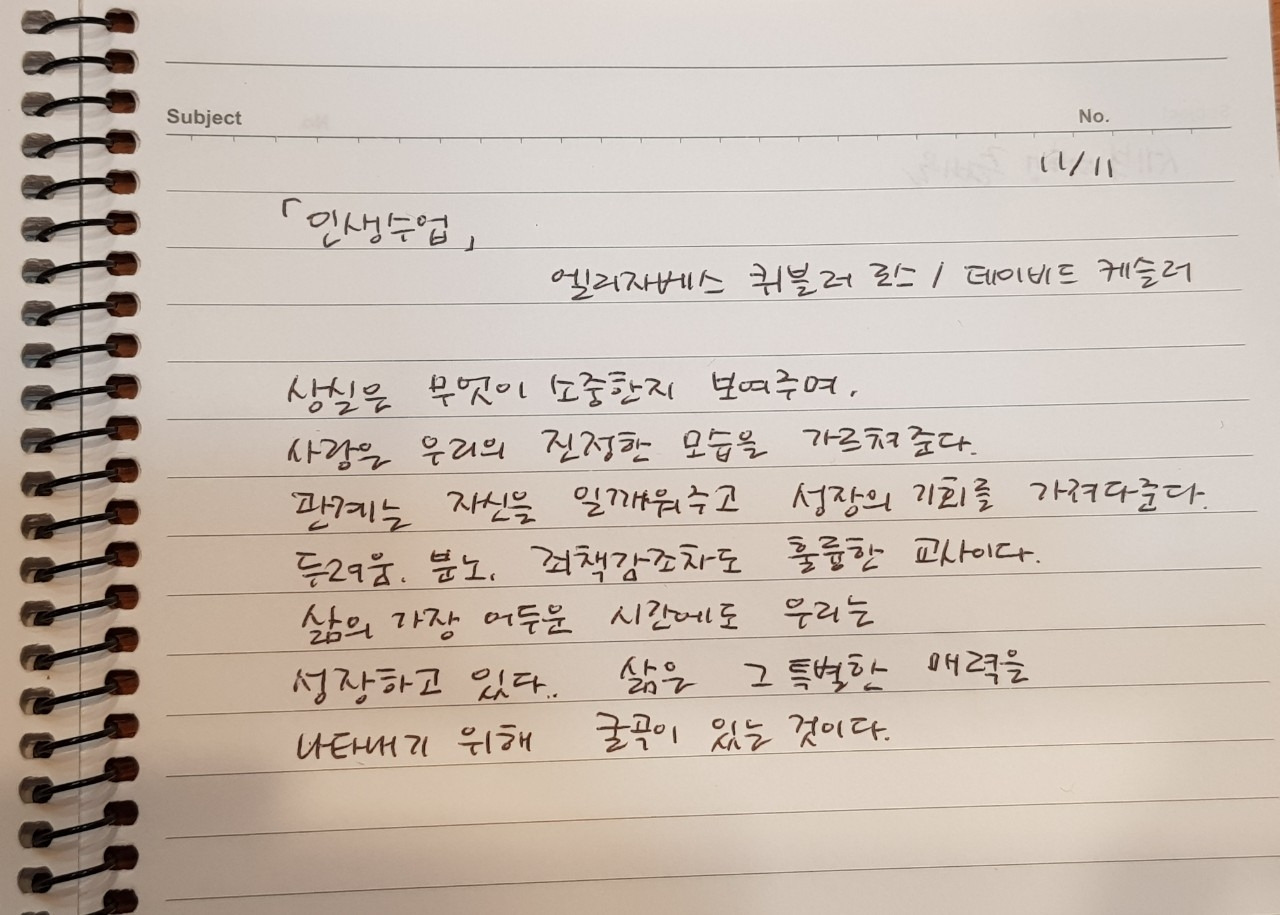 Subject
No.
11/11
「인생수업」
엘리자베스 퀴블러 로스 / 데이비드 케슬러
상실은 무엇이 소중한지 보여주며,
사랑은 우리의 진정한 모습을 가르쳐준다.
관계는 자신을 일깨워주고 성장의 기회를 가져다준다.
두려움, 분노, 죄책감조차도 훌륭한 교사이다.
삶의 가장 어두운 시간에도 우리는
성장하고 있다.. 삶은 그 특별한 매력을
나타내기 위해 굴곡이 있는 것이다.